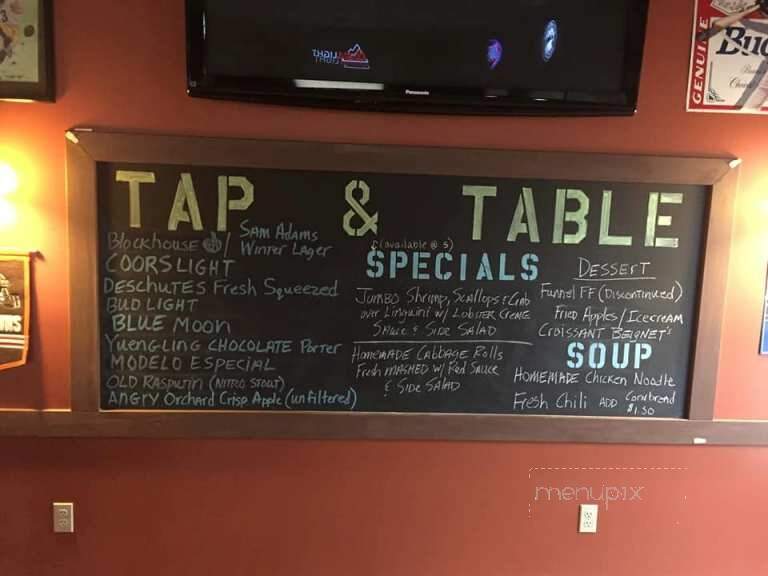 GENUINE
Bud
Panasonic
TAP & TABLE
Blockhouse / Sam Adams Winter Lager
COORS LIGHT
DESCHUTES Fresh Squeezed
BUD LIGHT
BLUE MOON
Yuengling CHOCOLATE Porter
MODELO ESPECIAL
OLD RASPUTIN (NITRO STOUT)
ANGRY Orchard Crisp Apple (unfiltered)
(available @ 5)
SPECIALS
Jumbo Shrimp, Scallops & Crab
over Linguini w/ Lobster Creme
Sauce & Side SALAD
Homemade Cabbage Rolls
Fresh MASHED w/ Red Sauce
& Side SALAD
DESSERT
Funnel FF (Discontinued)
Fried Apples/Icecream
Croissant BEIGNET'S
SOUP
HOMEMADE Chicken Noodle
Fresh Chili ADD Cornbread
$1.50
menupix